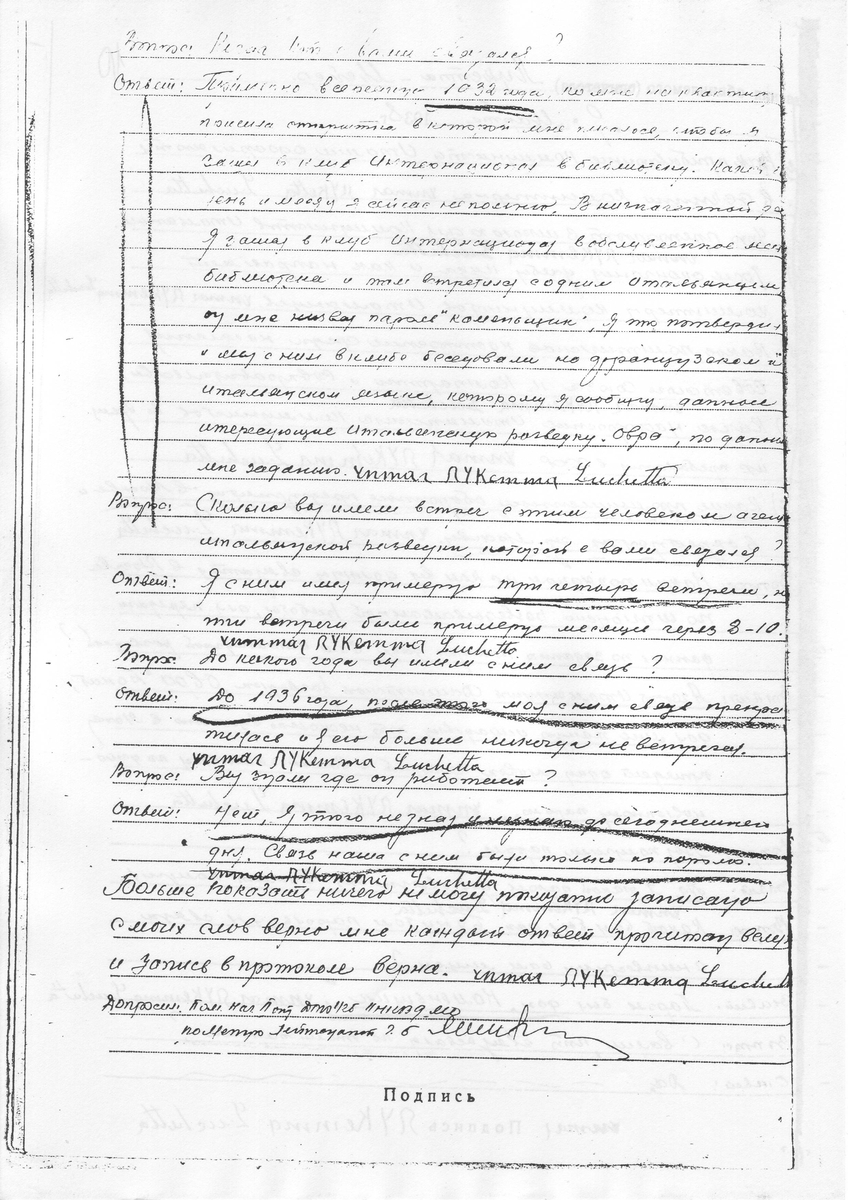 Вопрос: Когда он с вами связался?
Ответ: Примерно в сентябре 1932 года, ко мне на квартиру
пришла открытка в которой мне писалося, чтобы я
зашел в клуб Интернационал в библиотеку. Какой
день и месяц я сейчас не помню. В
Я зашел в клуб Интернационал в
библиотека и там встретился с одним итальянцем
он мне назвал пароль "каменьщик", я это потвердил
и мы с ним в клубе беседовали на французском и
итальянском языке, которому я сообщил, данные
итересующие итальянскую разведку "Овра", по данному
мне заданию. читал ЛУКетта Luchetta
Вопрос: Сколько вы имели встреч с этим человеком
итальянской разведки, который с вами связался?
Ответ: Я с ним имел примерно три четыре встречи,
эти встречи были примерно месяцев через 8-10.
читал ЛУКетта Luchetta
Вопрос До какого года вы имели с ним связь?
Ответ: До 1936 года, после этого моя с ним связь прекра
тилась и я его больше никогда не встречал.
читал ЛУКетта Luchetta
Вопрос: Вы знали где он работает?
Ответ: Нет, Я этого не знал и не знаю до сегоднешнего
дня. Связь наша с ним была только по паролю.
читал ЛУКетта Luchetta
Больше показать ничего не могу записано
с моих слов верно мне каждый ответ прочитан вслух
и запись в протоколе верна. читал ЛУКетта Luchetta
Допросил: Пом. Нач
Лейтенант ГБ
Подпись